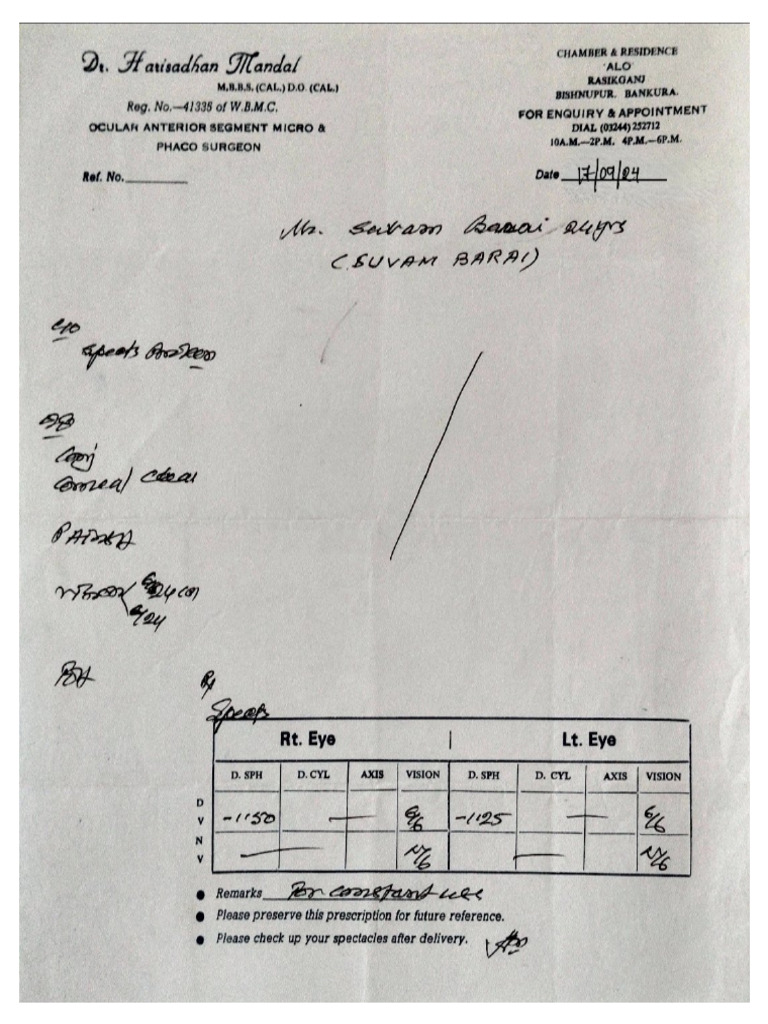 Dr. Harisadhan Mandal
M.B.B.S. (CAL.) D.O. (CAL.)
Reg. No.—41335 of W.B.M.C.
OCULAR ANTERIOR SEGMENT MICRO &
PHACO SURGEON
Ref. No.
CHAMBER & RESIDENCE
'ALO'
RASIKGANJ
BISHNUPUR. BANKURA.
FOR ENQUIRY & APPOINTMENT
DIAL (03244) 252712
10A.M.—2P.M. 4P.M.—6P.M.
Date 17/09/24
Mr. Suvam Barai 24yrs
(SUVAM BARAI)
C/O
Specs broken
O/E
Cornea clear
6/24
6/24
Rx
Specs
Rt. Eye | Lt. Eye
D. SPH D. CYL AXIS VISION D. SPH D. CYL AXIS VISION
D V -1.50 — 6/6 -1.25 — 6/6
N V — N/6 — N/6
Remarks For constant use
Please preserve this prescription for future reference.
Please check up your spectacles after delivery.